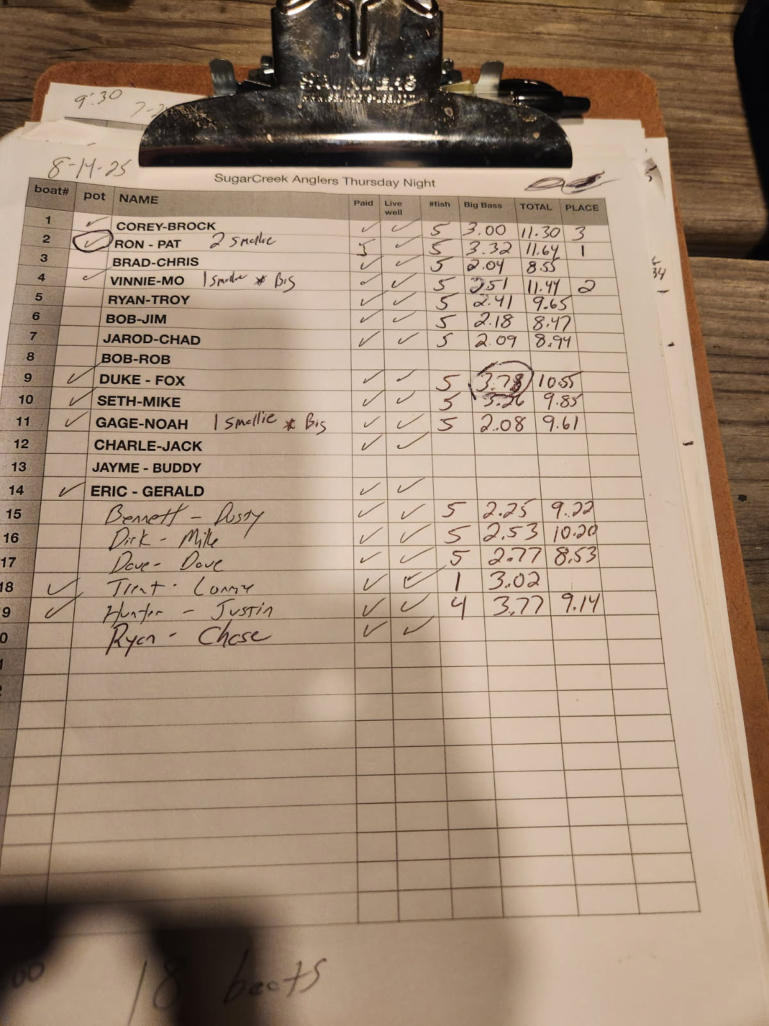 9:30
8-14-25
SugarCreek Anglers Thursday Night
boat# pot NAME Paid Live well #fish Big Bass TOTAL PLACE
1 ✓ COREY-BROCK ✓ ✓ 5 3.00 11.30 3
2 ✓ RON - PAT 2 Smallie 5 ✓ 5 3.32 11.64 1
3 BRAD-CHRIS ✓ ✓ 5 2.04 8.55
4 ✓ VINNIE-MO 1 Smallie * Big ✓ ✓ 5 2.51 11.47 2
5 RYAN-TROY ✓ ✓ 5 2.41 9.65
6 BOB-JIM ✓ ✓ 5 2.18 8.47
7 JAROD-CHAD ✓ ✓ 5 2.09 8.94
8 BOB-ROB
9 ✓ DUKE - FOX ✓ ✓ 5 3.78 10.55
10 ✓ SETH-MIKE ✓ ✓ 5 3.26 9.85
11 ✓ GAGE-NOAH 1 Smallie * Big ✓ ✓ 5 2.08 9.61
12 CHARLE-JACK ✓ ✓
13 JAYME - BUDDY
14 ✓ ERIC - GERALD ✓ ✓
15 Bennett - Dusty ✓ ✓ 5 2.25 9.22
16 Dick - Mike ✓ ✓ 5 2.53 10.20
17 Dave - Dave ✓ ✓ 5 2.77 8.53
18 ✓ Trent - Lonny ✓ ✓ 1 3.02
9 ✓ Hunter - Justin ✓ ✓ 4 3.77 9.14
0 Ryan - Chase ✓ ✓
18 boats